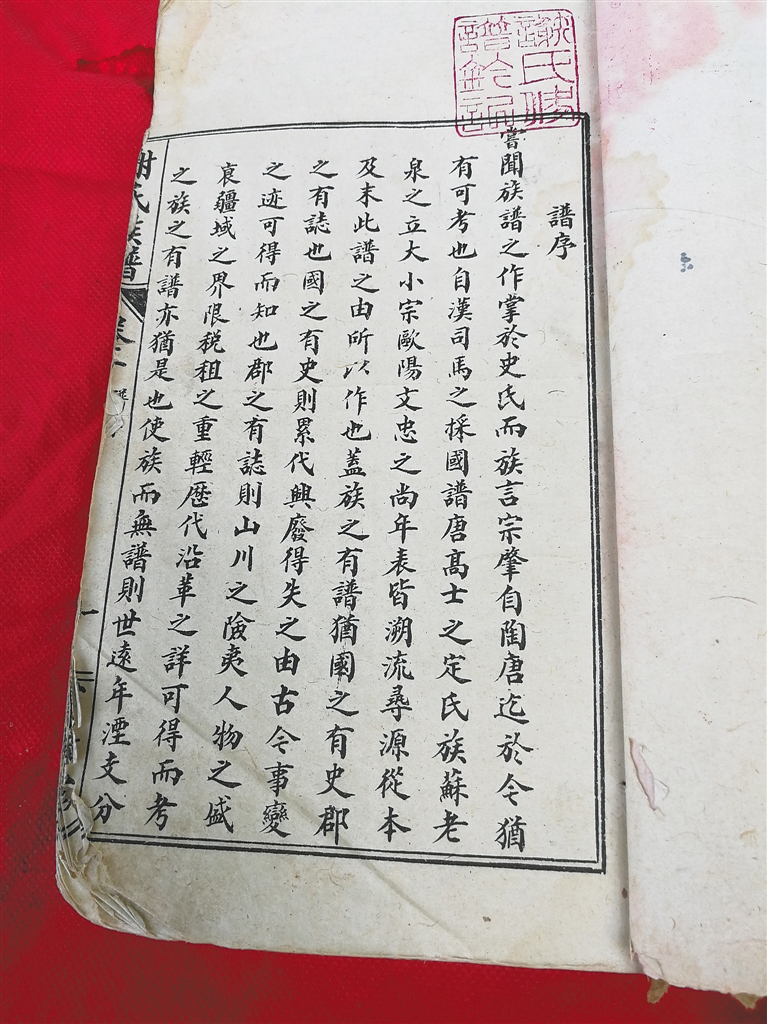 譜序
嘗聞族譜之作掌於史氏而族言宗肇自陶唐迄於今猶
有可考也自漢司馬之採國譜唐高士之定氏族蘇老
泉之立大小宗歐陽文忠之尚年表皆溯流尋源從本
及末此譜之由所以作也蓋族之有譜猶國之有史郡
之有誌也國之有史則累代興廢得失之由古今事變
之迹可得而知也郡之有誌則山川之險夷人物之盛
衰疆域之界限税租之重輕歷代沿革之詳可得而考
之族之有譜亦猶是也使族而無譜則世遠年湮支分
謝氏族譜
謝氏修
譜鈐記